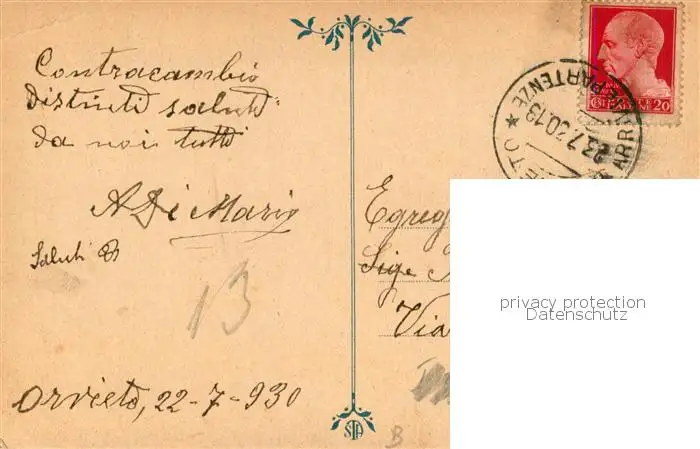 Contracambio
Distinti saluti
da noi tutti
A Di Mario
Saluti
13
Orvieto, 22-7-930
Egreg
Sig.
Via
20
ARRIVI PARTENZE
23.7.30.13
ETO *
STA
B
privacy protection
Datenschutz